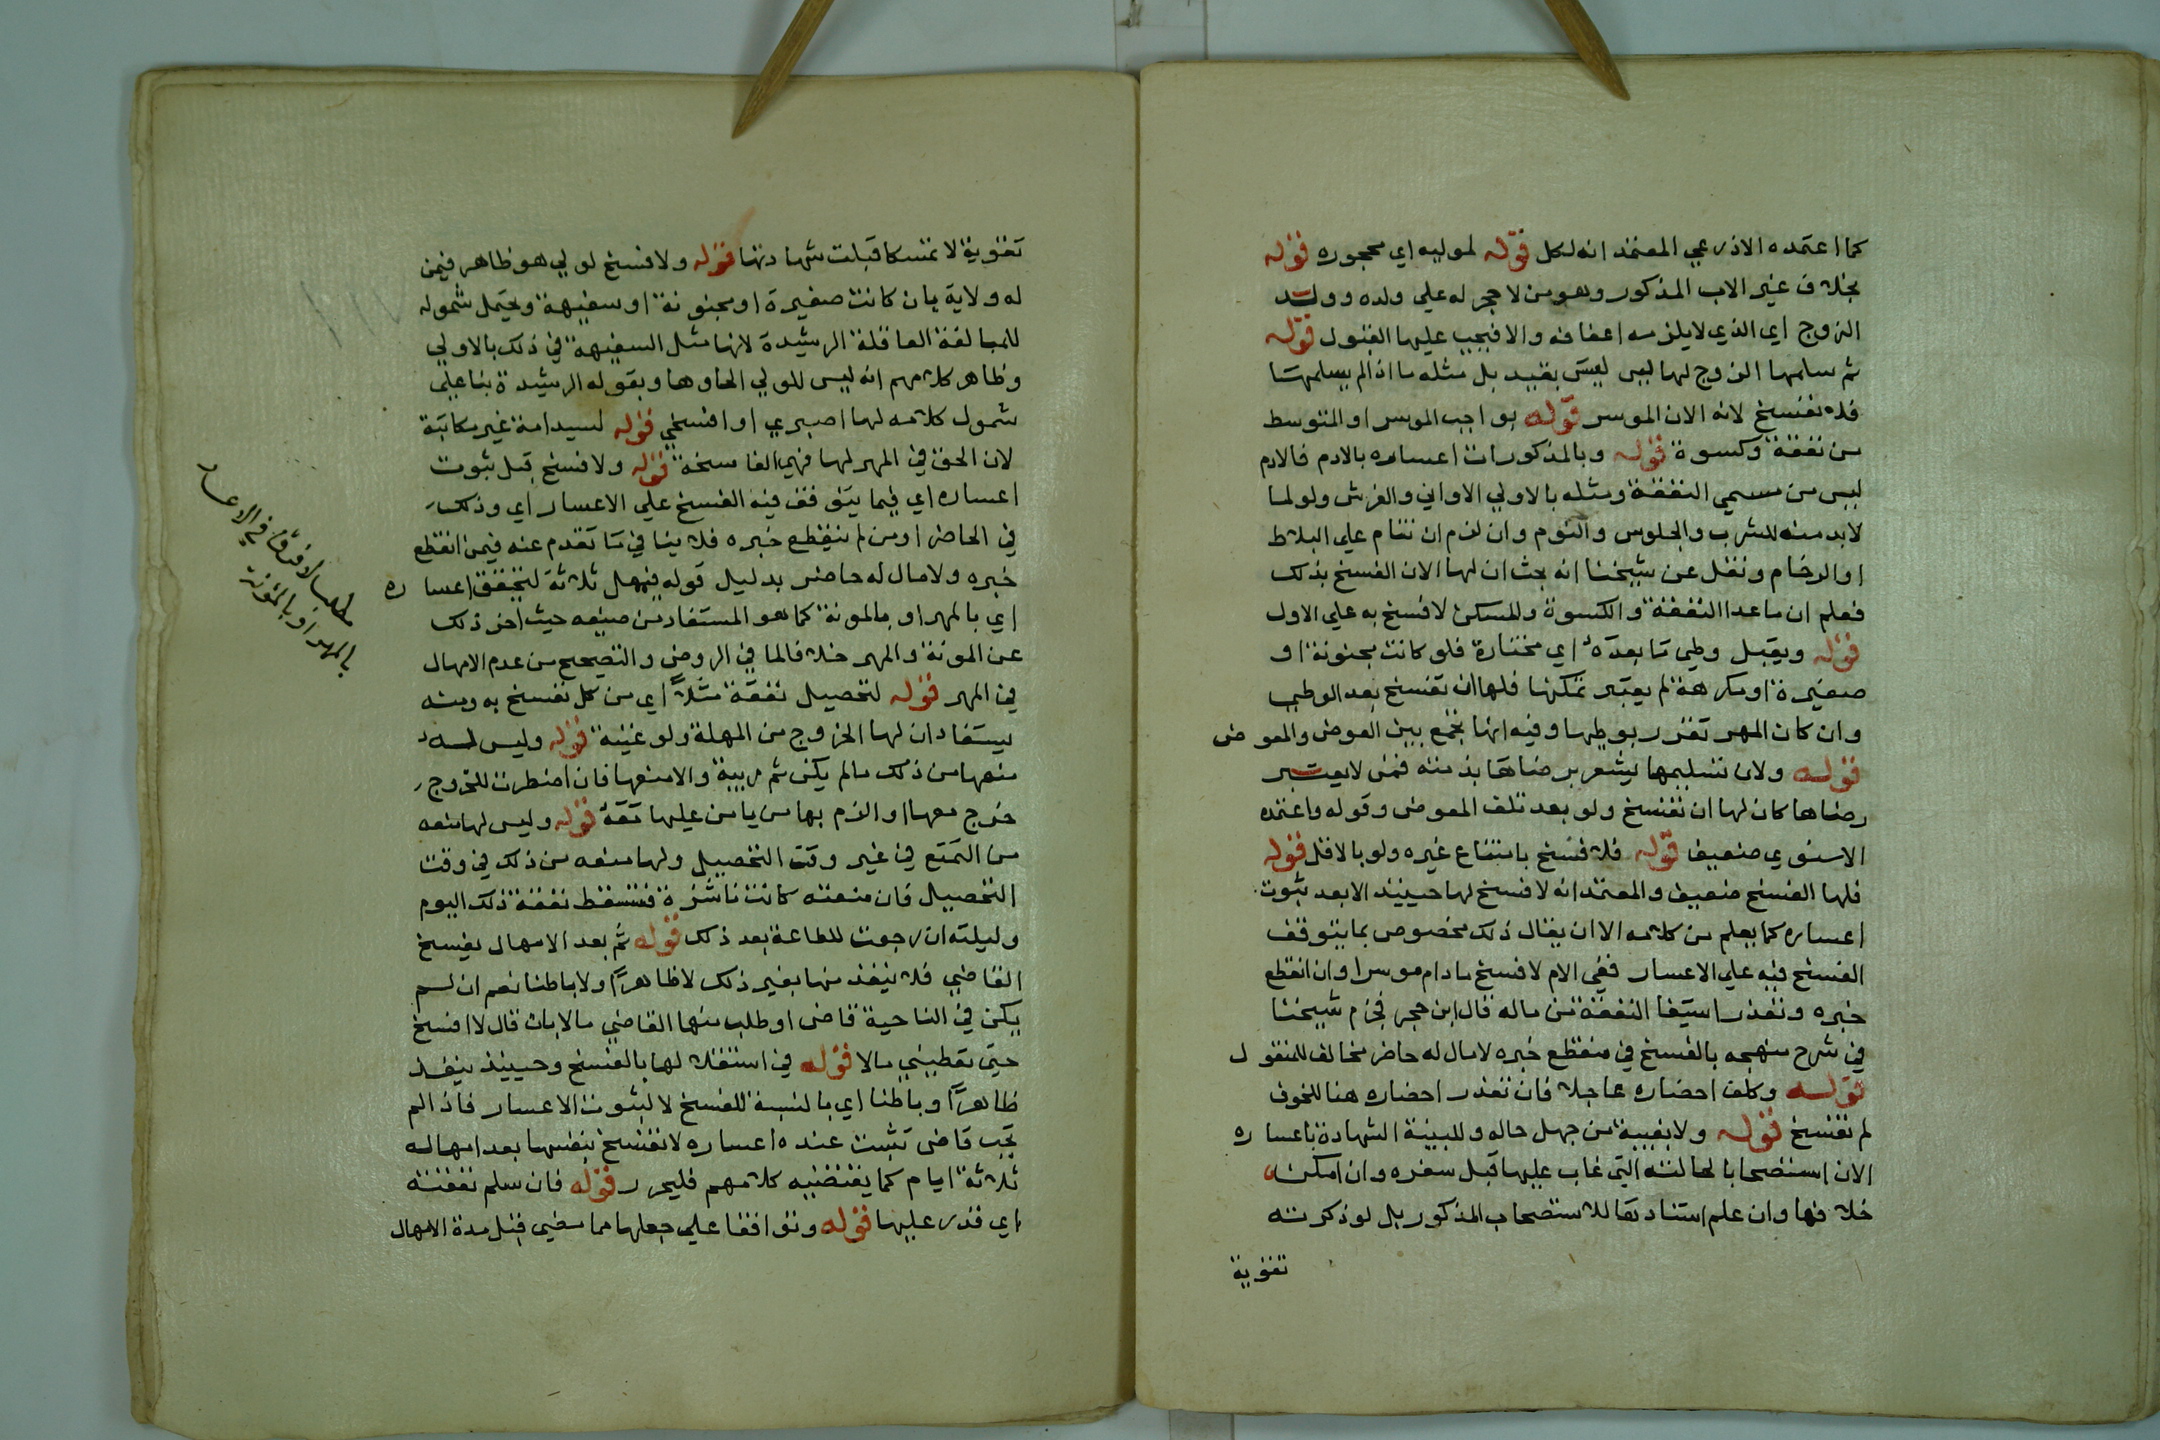 كما اعتمده الاذرعي المعتمد انه لكل قوله لموليه اي محجوره قوله
بخلاف غير الاب المذكور وهو من لا حجر له علي ولده وولد
الزوج اي الذي لا يلزمه اعفافه والا فيجب عليها القبول قوله
ثم سلمها الزوج لها ليس ليس بقيد بل مثله ما اذا لم يسلمها
فلا تفسخ لانه الان الموسر قوله بواجب الموسر او المتوسط
من نفقة وكسوة قوله وبالمذكورات اعساره بالادم فالادم
ليس من مسمي النفقة ومثله بالاولي الاواني والفرش ولو لما
لابد منه للشرب والجلوس والنوم وان لزم ان تنام علي البلاط
او الرخام ونقل عن شيخنا انه بحث ان لها الان الفسخ بذلك
فعلم ان ما عدا النفقة والكسوة وللمسكن لا فسخ به علي الاول
قوله ويقبل وطي ما بعده اي مختارة فلو كانت مجنونة او
صغيرة او مكرهة لم يعتبر تمكنها فلها ان تفسخ بعد الوطي
وان كان المهر تقرر بوطيها وفيه انها تجمع بين العوض والمعوض
قوله ولان تسليمها يشعر برضاها بذمته فمن لا يعتبر
رضاها كان لها ان تفسخ ولو بعد تلف المعوض وقوله واعتمده
الاسنوي ضعيف قوله فلا فسخ بامتناع غيره ولو بالاقل قوله
فلها الفسخ ضعيف والمعتمد انه لا فسخ لها حينيذ الا بعد ثبوت
اعساره كما يعلم من كلامه الا ان يقال ذلك مخصوص بما يتوقف
الفسخ فيه علي الاعسار ففي الام لا فسخ ما دام موسرا وان انقطع
خبره وتعذر استيفا النفقة من ماله قال ابن حجر فجزم شيخنا
في شرح منهجه بالفسخ في منقطع خبره لا مال له حاضر مخالف للمنقول
قوله وكلف احضاره عاجلا فان تعذر احضاره هنا للخوف
لم تفسخ قوله ولا بغيبة من جهل حاله وللبينة الشهادة باعساره
الان استصحابا لحالته التي غاب عليها قبل سفره وان امكن
خلافها وان علم استنادها للاستصحاب المذكور بل لو ذكرته
تقوية
تقوية لا تمسكا قبلت شهادتها قوله ولا فسخ لولي هو ظاهر فيمن
له ولاية بان كانت صغيرة او مجنونة او سفيهة ويحتمل شموله
للبالغة العاقلة الرشيدة لانها مثل السفيهة في ذلك بالاولي
وظاهر كلامهم انه ليس للولي الجاوها وبقوله الرشيدة بنا علي
شمول كلامه لها اصبري او افسخي قوله لسيد امة غير مكاتبة
لان الحق في المهر لها فهي الفاسخة قوله ولا فسخ قبل ثبوت
اعساره اي فيما يتوقف فيه الفسخ علي الاعسار اي وذلك
في الحاضر او من لم ينقطع خبره فلا ينافي ما تقدم عنه فيمن انقطع
خبره ولا مال له حاضر بدليل قوله فيمهل ثلاثة لتحقق اعساره
اي بالمهر او بالمونة كما هو المستفاد من صنيعه حيث اخر ذلك
عن المونة والمهر خلافا لما في الروض والتصحيح من عدم الامهال
في المهر قوله لتحصيل نفقة مثلا اي من كل تفسخ به ومنه
يستفاد ان لها الخروج من المهلة ولو غنية قوله وليس له
منعها من ذلك ما لم يكن ثم ريبة والا منعها فان اضطرت للخروج
خرج معها او الزم بها من يامن عليها معه قوله وليس لها منعه
من التمتع في غير وقت التحصيل ولها منعه من ذلك في وقت
التحصيل فان منعته كانت ناشزة فتسقط نفقة ذلك اليوم
وليلته ان رجعت للطاعة بعد ذلك قوله ثم بعد الامهال يفسخ
القاضي فلا ينفذ منها بغير ذلك لا ظاهرا ولا باطنا نعم ان لم
يكن في الناحية قاض او طلب منها القاضي مالا بان قال لا افسخ
حتي تعطيني مالا قوله في استقلالها بالفسخ وحينيذ ينفذ
ظاهرا وباطنا اي بالنسبة للفسخ لا لثبوت الاعسار فاذا لم
تجب قاض تثبت عنده اعساره لا تفسخ بنفسها بعد امهاله
ثلاثة ايام كما يقتضيه كلامهم فليحرر قوله فان سلم نفقته
اي قدر عليها قوله وتوافقا علي جعلها مما مضي قبل مدة الامهال
مطلب لا فرق في الاعسار
بالمهر او بالمونة